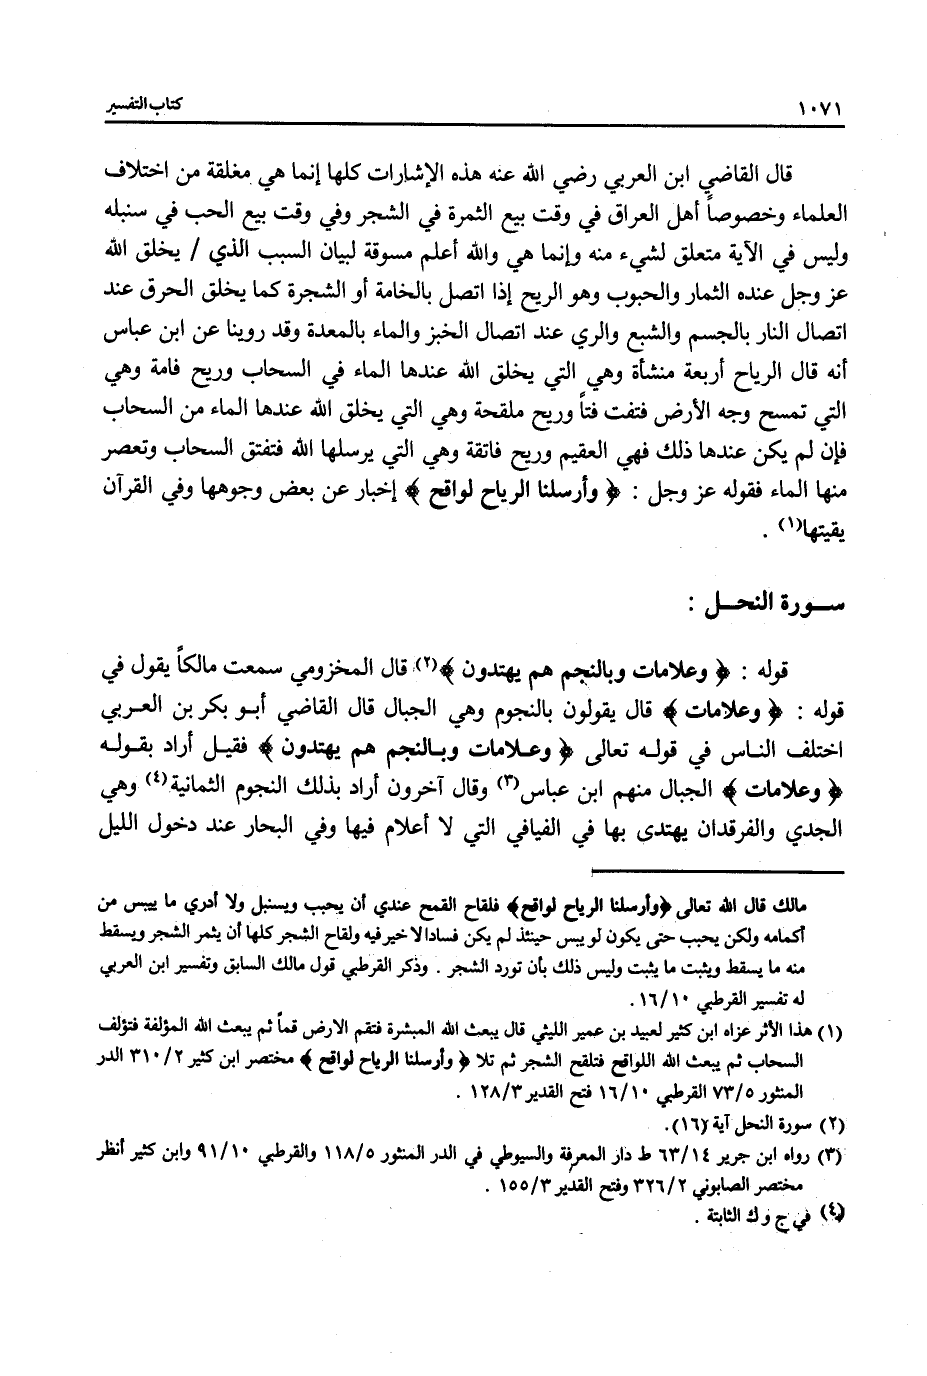 ١٠٧١
كتاب التفسير
قال القاضي ابن العربي رضي الله عنه هذه الإشارات كلها إنما هي مغلقة من اختلاف
العلماء وخصوصاً أهل العراق في وقت بيع الثمرة في الشجر وفي وقت بيع الحب في سنبله
وليس في الآية متعلق لشيء منه وإنما هي والله أعلم مسوقة لبيان السبب الذي / يخلق الله
عز وجل عنده الثمار والحبوب وهو الريح إذا اتصل بالخامة أو الشجرة كما يخلق الحرق عند
اتصال النار بالجسم والشبع والري عند اتصال الخبز والماء بالمعدة وقد روينا عن ابن عباس
أنه قال الرياح أربعة منشأة وهي التي يخلق الله عندها الماء في السحاب وريح قامة وهي
التي تمسح وجه الأرض فتفت فتاً وريح ملقحة وهي التي يخلق الله عندها الماء من السحاب
فإن لم يكن عندها ذلك فهي العقيم وريح فاتقة وهي التي يرسلها الله فتفتق السحاب وتعصر
منها الماء فقوله عز وجل : ﴿ وأرسلنا الرياح لواقح ﴾ إخبار عن بعض وجوهها وفي القرآن
يقيتها(١) .
سورة النحل :
قوله : ﴿ وعلامات وبالنجم هم يهتدون ﴾(٢) قال المخزومي سمعت مالكاً يقول في
قوله : ﴿ وعلامات ﴾ قال يقولون بالنجوم وهي الجبال قال القاضي أبو بكر بن العربي
اختلف الناس في قوله تعالى ﴿ وعلامات وبالنجم هم يهتدون ﴾ فقيل أراد بقوله
﴿ وعلامات ﴾ الجبال منهم ابن عباس(٣) وقال آخرون أراد بذلك النجوم الثمانية(٤) وهي
الجدي والفرقدان يهتدى بها في الفيافي التي لا أعلام فيها وفي البحار عند دخول الليل
مالك قال الله تعالى ﴿وأرسلنا الرياح لواقح﴾ فلقاح القمح عندي أن يحبب ويسنبل ولا أدري ما ييبس من
أكمامه ولكن يحبب حتى يكون لو يبس حينئذ لم يكن فسادا لا خير فيه ولقاح الشجر كلها أن يثمر الشجر ويسقط
منه ما يسقط ويثبت ما يثبت وليس ذلك بأن تورد الشجر . وذكر القرطبي قول مالك السابق وتفسير ابن العربي
له تفسير القرطبي ١٦/١٠.
(١) هذا الأثر عزاه ابن كثير لعبيد بن عمير الليثي قال يبعث الله المبشرة فتقم الارض قماً ثم يبعث الله المؤلفة فتؤلف
السحاب ثم يبعث الله اللواقح فتلقح الشجر ثم تلا ﴿ وأرسلنا الرياح لواقح ﴾ مختصر ابن كثير ٣١٠/٢ الدر
المنثور ٧٣/٥ القرطبي ١٦/١٠ فتح القدير ١٢٨/٣ .
(٢) سورة النحل آية (١٦).
(٣) رواه ابن جرير ٦٣/١٤ ط دار المعرفة والسيوطي في الدر المنثور ١١٨/٥ والقرطبي ٩١/١٠ وابن كثير أنظر
مختصر الصابوني ٣٢٦/٢ وفتح القدير ١٥٥/٣ .
(٤) في ج و ك الثابتة .